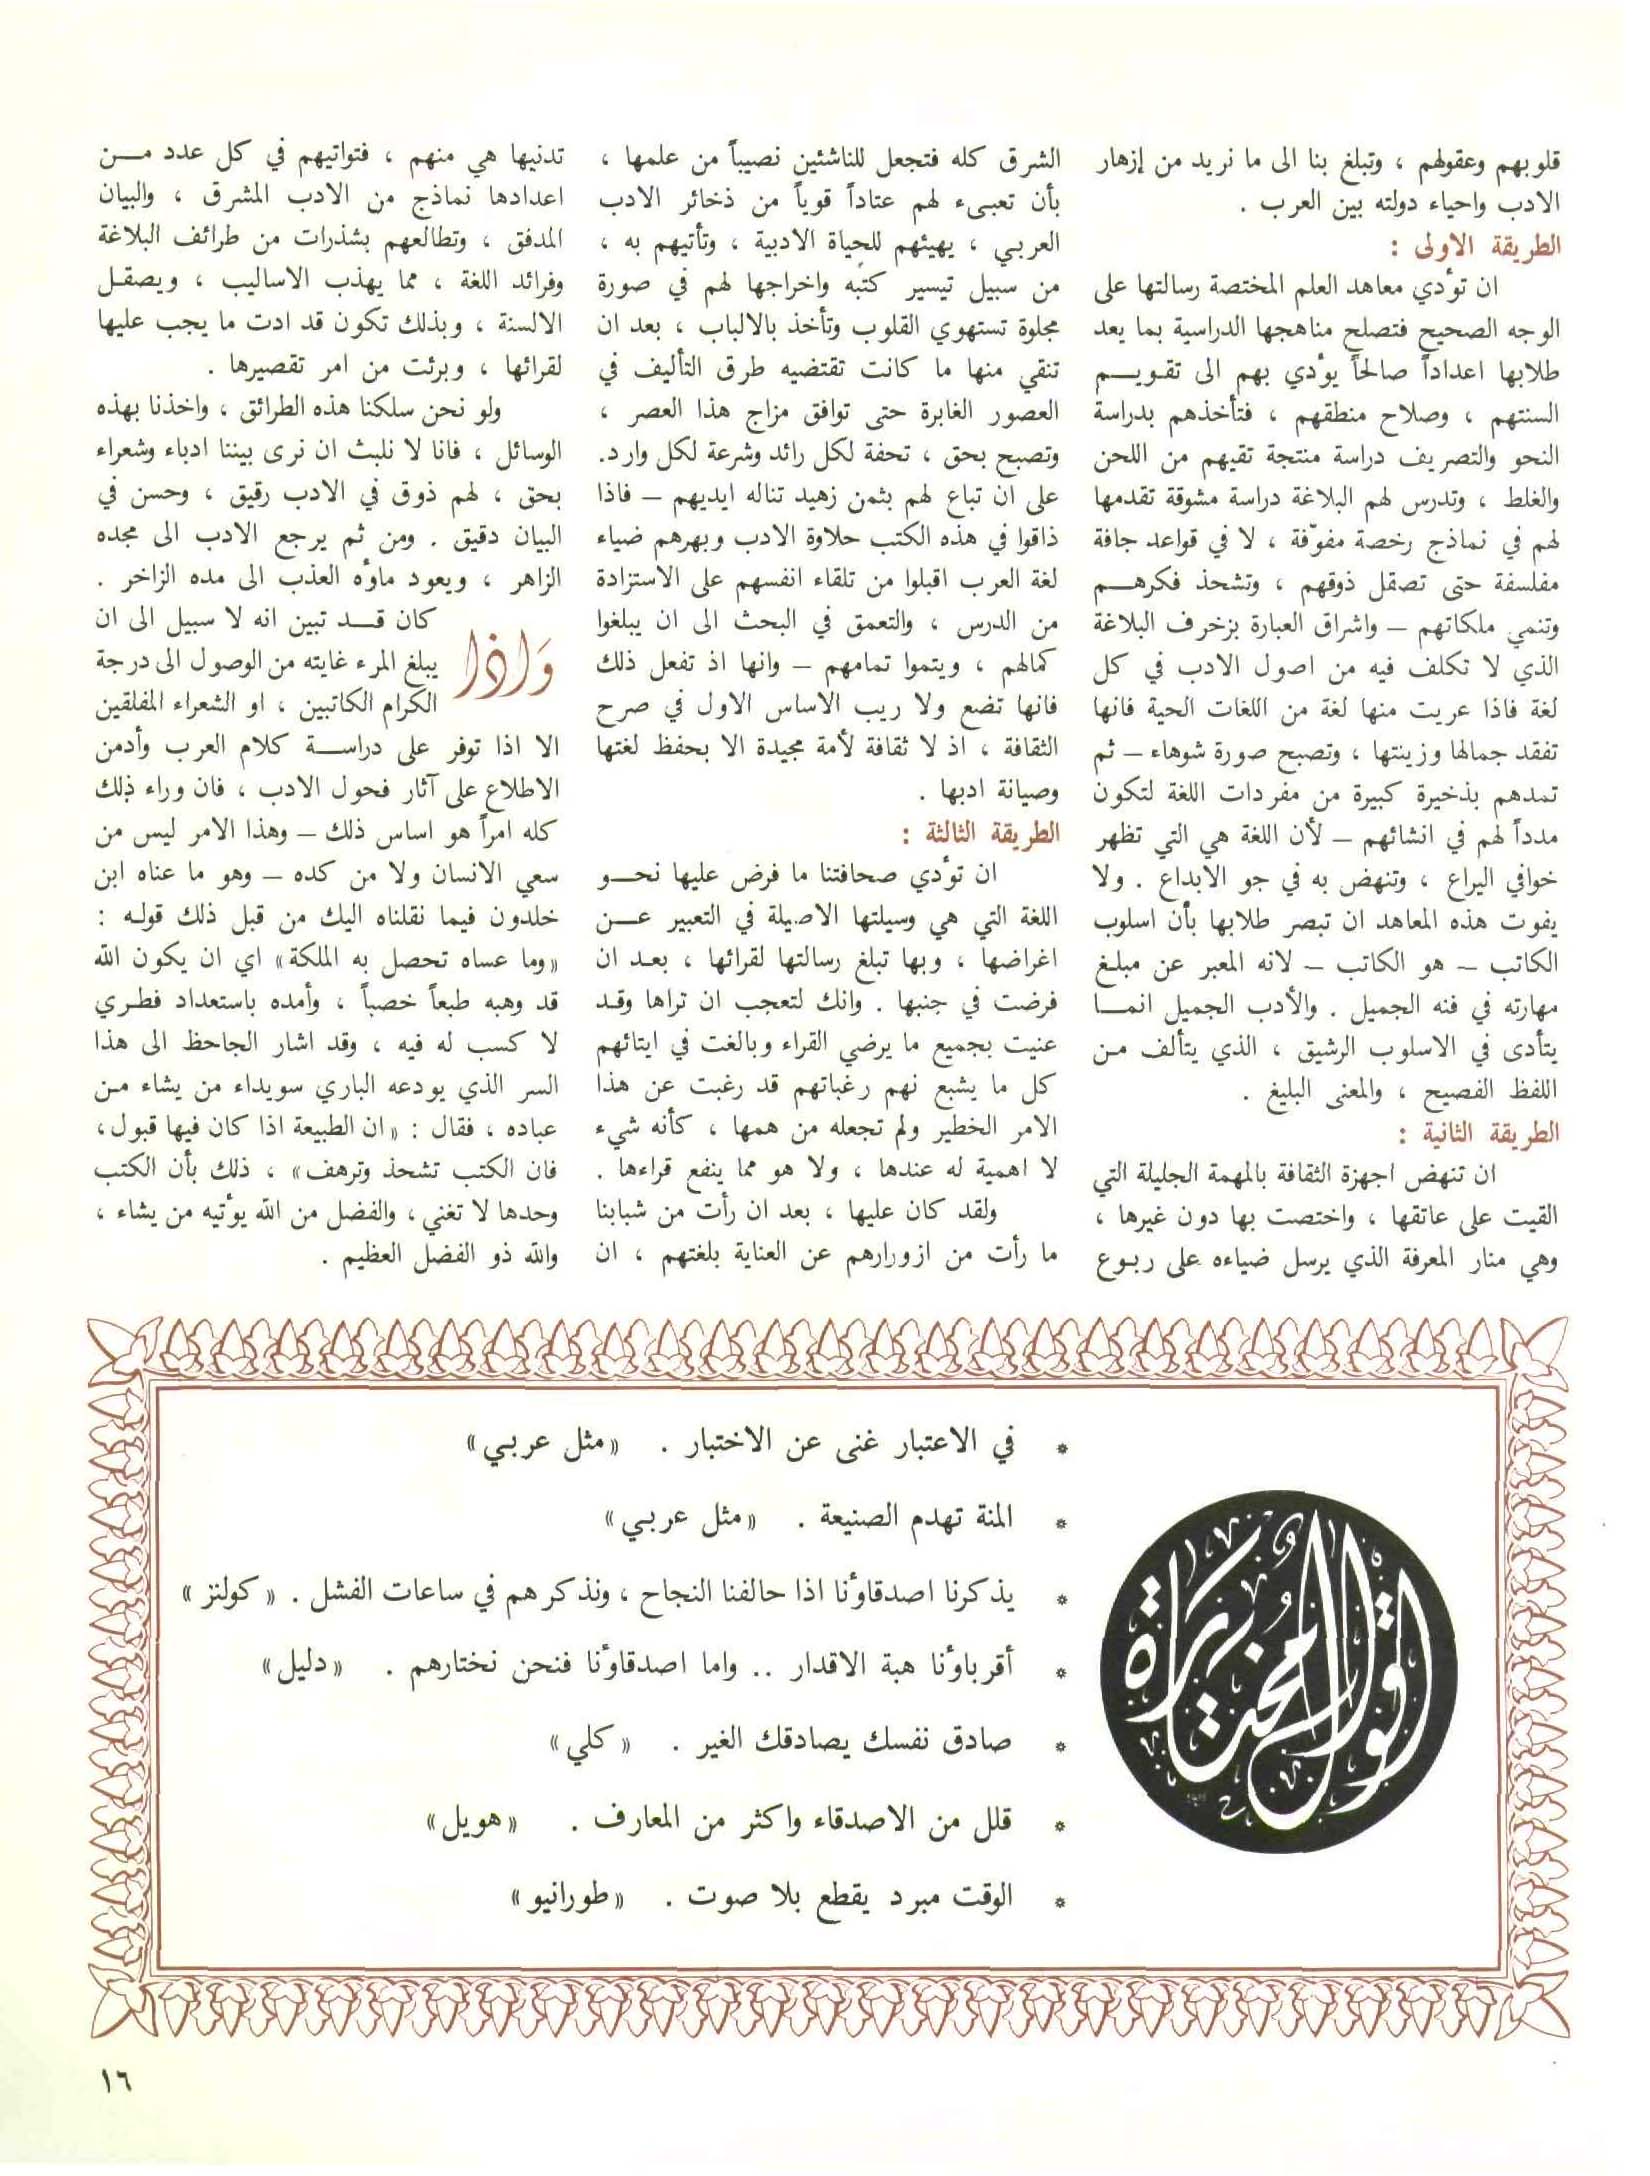 قلوبهم وعقولهم ، وتبلغ بنا الى ما نريد من إزهار
الادب واحياء دولته بين العرب .
الطريقة الاولى :
ان تؤدي معاهد العلم المختصة رسالتها على
الوجه الصحيح فتصلح مناهجها الدراسية بما يعد
طلابها اعداداً صالحاً يؤدي بهم الى تقويم
السنتهم ، وصلاح منطقهم ، فتأخذهم بدراسة
النحو والتصريف دراسة منتجة تقيهم من اللحن
والغلط ، وتدرس لهم البلاغة دراسة مشوقة تقدمها
لهم في نماذج رخصة مفوّفة ، لا في قواعد جافة
مفلسفة حتى تصقل ذوقهم ، وتشحذ فكرهم
وتنمي ملكاتهم – واشراق العبارة بزخرف البلاغة
الذي لا تكلف فيه من اصول الادب في كل
لغة فاذا عريت منها لغة من اللغات الحية فانها
تفقد جمالها وزينتها ، وتصبح صورة شوهاء – ثم
تمدهم بذخيرة كبيرة من مفردات اللغة لتكون
مدداً لهم في انشائهم – لأن اللغة هي التي تظهر
خوافي اليراع ، وتنهض به في جو الابداع . ولا
يفوت هذه المعاهد ان تبصر طلابها بأن اسلوب
الكاتب – هو الكاتب – لانه المعبر عن مبلغ
مهارته في فنه الجميل . والأدب الجميل انما
يتأدى في الاسلوب الرشيق ، الذي يتألف من
اللفظ الفصيح ، والمعنى البليغ .
الطريقة الثانية :
ان تنهض اجهزة الثقافة بالمهمة الجليلة التي
القيت على عاتقها ، واختصت بها دون غيرها ،
وهي منار المعرفة الذي يرسل ضياءه على ربوع
الشرق كله فتجعل للناشئين نصيباً من علمها ،
بأن تعبىء لهم عتاداً قوياً من ذخائر الادب
العربي ، يهيئهم للحياة الادبية ، وتأتيهم به ،
من سبيل تيسير كتبه واخراجها لهم في صورة
مجلوة تستهوي القلوب وتأخذ بالالباب ، بعد ان
تنقي منها ما كانت تقتضيه طرق التأليف في
العصور الغابرة حتى توافق مزاج هذا العصر ،
وتصبح بحق ، تحفة لكل رائد وشرعة لكل وارد.
على ان تباع لهم بثمن زهيد تناله ايديهم – فاذا
ذاقوا في هذه الكتب حلاوة الادب وبهرهم ضياء
لغة العرب اقبلوا من تلقاء انفسهم على الاستزادة
من الدرس ، والتعمق في البحث الى ان يبلغوا
كمالهم ، ويتموا تمامهم – وانها اذ تفعل ذلك
فانها تضع ولا ريب الاساس الاول في صرح
الثقافة ، اذ لا ثقافة لأمة مجيدة الا بحفظ لغتها
وصيانة ادبها .
الطريقة الثالثة :
ان تؤدي صحافتنا ما فرض عليها نحو
اللغة التي هي وسيلتها الاصيلة في التعبير عن
اغراضها ، وبها تبلغ رسالتها لقرائها ، بعد ان
فرضت في جنبها . وانك لتعجب ان تراها وقد
عنيت بجميع ما يرضي القراء وبالغت في ايتائهم
كل ما يشبع نهم رغباتهم قد رغبت عن هذا
الامر الخطير ولم تجعله من همها ، كأنه شيء
لا اهمية له عندها ، ولا هو مما ينفع قراءها .
ولقد كان عليها ، بعد ان رأت من شبابنا
ما رأت من ازورارهم عن العناية بلغتهم ، ان
تدنيها هي منهم ، فتواتيهم في كل عدد من
اعدادها نماذج من الادب المشرق ، والبيان
المدفق ، وتطالعهم بشذرات من طرائف البلاغة
وفرائد اللغة ، مما يهذب الاساليب ، ويصقل
الالسنة ، وبذلك تكون قد ادت ما يجب عليها
لقرائها ، وبرئت من امر تقصيرها .
ولو نحن سلكنا هذه الطرائق ، واخذنا بهذه
الوسائل ، فانا لا نلبث ان نرى بيننا ادباء وشعراء
بحق ، لهم ذوق في الادب رقيق ، وحسن في
البيان دقيق . ومن ثم يرجع الادب الى مجده
الزاهر ، ويعود ماؤه العذب الى مده الزاخر .
وَاذا كان قد تبين انه لا سبيل الى ان
يبلغ المرء غايته من الوصول الى درجة
الكرام الكاتبين ، او الشعراء المفلقين
الا اذا توفر على دراسة كلام العرب وأدمن
الاطلاع على آثار فحول الادب ، فان وراء ذلك
كله امراً هو اساس ذلك – وهذا الامر ليس من
سعي الانسان ولا من كده – وهو ما عناه ابن
خلدون فيما نقلناه اليك من قبل ذلك قوله :
«وما عساه تحصل به الملكة» اي ان يكون الله
قد وهبه طبعاً خصباً ، وأمده باستعداد فطري
لا كسب له فيه ، وقد اشار الجاحظ الى هذا
السر الذي يودعه الباري سويداء من يشاء من
عباده ، فقال : «ان الطبيعة اذا كان فيها قبول،
فان الكتب تشحذ وترهف» ، ذلك بأن الكتب
وحدها لا تغني ، والفضل من الله يؤتيه من يشاء ،
والله ذو الفضل العظيم .
اقوال مختارة
* في الاعتبار غنى عن الاختبار . «مثل عربي»
* المنة تهدم الصنيعة . «مثل عربي»
* يذكرنا اصدقاؤنا اذا حالفنا النجاح ، ونذكرهم في ساعات الفشل . «كولنز»
* أقرباؤنا هبة الاقدار .. واما اصدقاؤنا فنحن نختارهم . «دليل»
* صادق نفسك يصادقك الغير . «كلي»
* قلل من الاصدقاء واكثر من المعارف . «هويل»
* الوقت مبرد يقطع بلا صوت . «طورانيو»
١٦